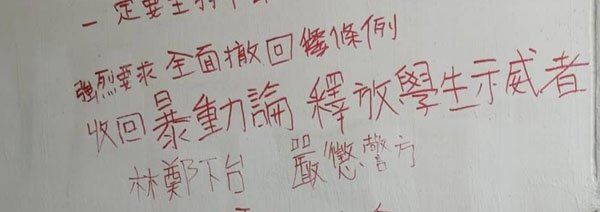 一定要堅持下
強烈要求 全面撤回 條例
收回暴動論 釋放學生示威者
林鄭下台 嚴懲警方